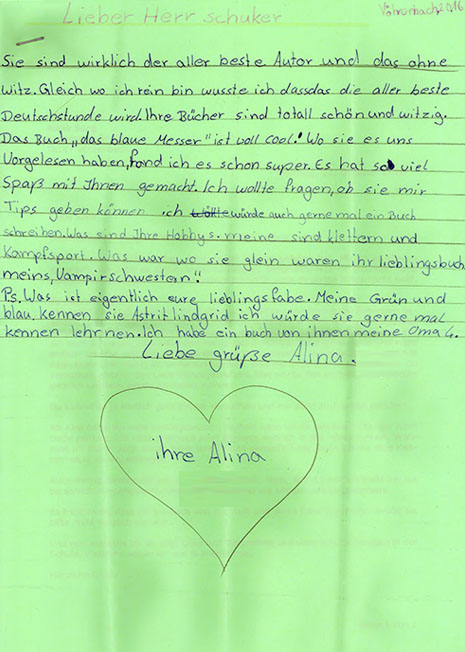 Lieber Herr schuker
Vöhrenbach, 2016
Sie sind wirklich der aller beste Autor und das ohne
witz. Gleich wo ich rein bin wusste ich dassdas die aller beste
Deutschstunde wird. Ihre Bücher sind totall schön und witzig.
Das Buch „das blaue Messer" ist voll cool! Wo sie es uns
Vorgelesen haben, fand ich es schon super. Es hat so viel
Spaß mit Ihnen gemacht. Ich wollte fragen, ob sie mir
Tips geben können ich würde auch gerne mal ein Buch
schreiben. Was sind Ihre Hobbys. meine sind klettern und
Kampfsport. Was war wo sie glein waren ihr lieblingsbuch
meins „Vampirschwestern".
Ps. Was ist eigentlich eure lieblingsfabe. Meine Grün und
blau. Kennen sie Astrit lindgrid ich würde sie gerne mal
kennen lehrnen. Ich habe ein buch von ihnen meine Oma 4.
Liebe grüße Alina.
ihre Alina